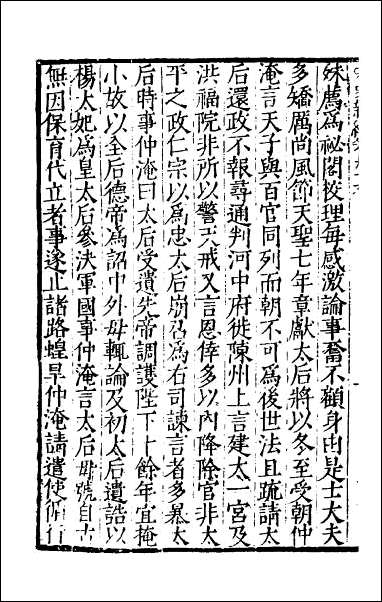 殊薦爲祕閣校理每感激論事奮不顧身由是士大夫
多矯厲尚風節天聖七年章獻太后將以冬至受朝仲
淹言天子與百官同列而朝不可爲後世法且疏請太
后還政不報尋通判河中府徙陳州上言建太一宮及
洪福院非所以警天戒又言恩倖多以內降除官非太
平之政仁宗以爲忠太后崩召爲右司諫言者多暴太
后時事仲淹曰太后受遺先帝調護陛下十餘年宜掩
小故以全后德帝爲詔中外毋輒論及初太后遺誥以
楊太妃爲皇太后參決軍國事仲淹言太后母號自古
無因保育代立者事遂止諸路蝗旱仲淹請遣使循行